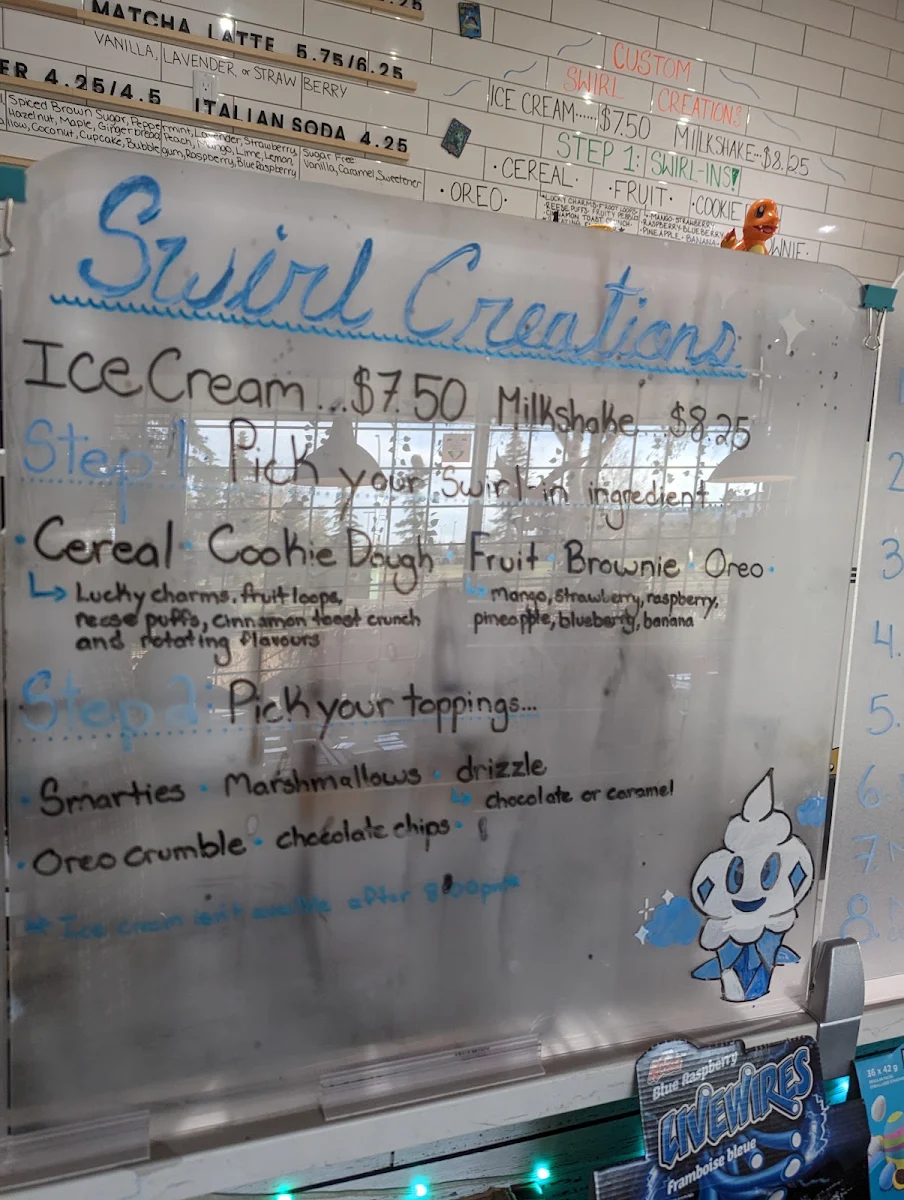 .25
MATCHA LATTE 5.75/6.25
VANILLA, LAVENDER, or STRAWBERRY
ER 4.25/4.5
ITALIAN SODA 4.25
Spiced Brown Sugar, Peppermint, Lavender, Strawberry
Hazelnut, Maple, Gingerbread, Peach, Mango, Lime, Lemon,
llow, Coconut, Cupcake, Bubblegum, Raspberry, Blue Raspberry
Sugar Free
Vanilla, Caramel, Sweetener
CUSTOM
SWIRL CREATIONS
ICE CREAM......$7.50 MILKSHAKE...$8.25
STEP 1: SWIRL-INS
• CEREAL • • FRUIT • • COOKIE
• OREO •
WNIE •
• MANGO • STRAWBERRY
• RASPBERRY • BLUEBERRY
• PINEAPPLE • BANANA
Swirl Creations
Ice Cream...$7.50 Milkshake...$8.25
Step 1 Pick your Swirl-in ingredient...
• Cereal • Cookie Dough • Fruit • Brownie • Oreo •
Lucky charms, fruit loops,
reese puffs, cinnamon toast crunch
and rotating flavours
mango, strawberry, raspberry,
pineapple, blueberry, banana
Step 2: Pick your toppings...
• Smarties • Marshmallows • drizzle
chocolate or caramel
• Oreo crumble • chocolate chips •
* Ice cream isn't availble after 8:00pm*
2
3
4.
5.
6.
7
8.
Blue Raspberry
LIVEWIRES
Framboise bleue
16 x 42 g